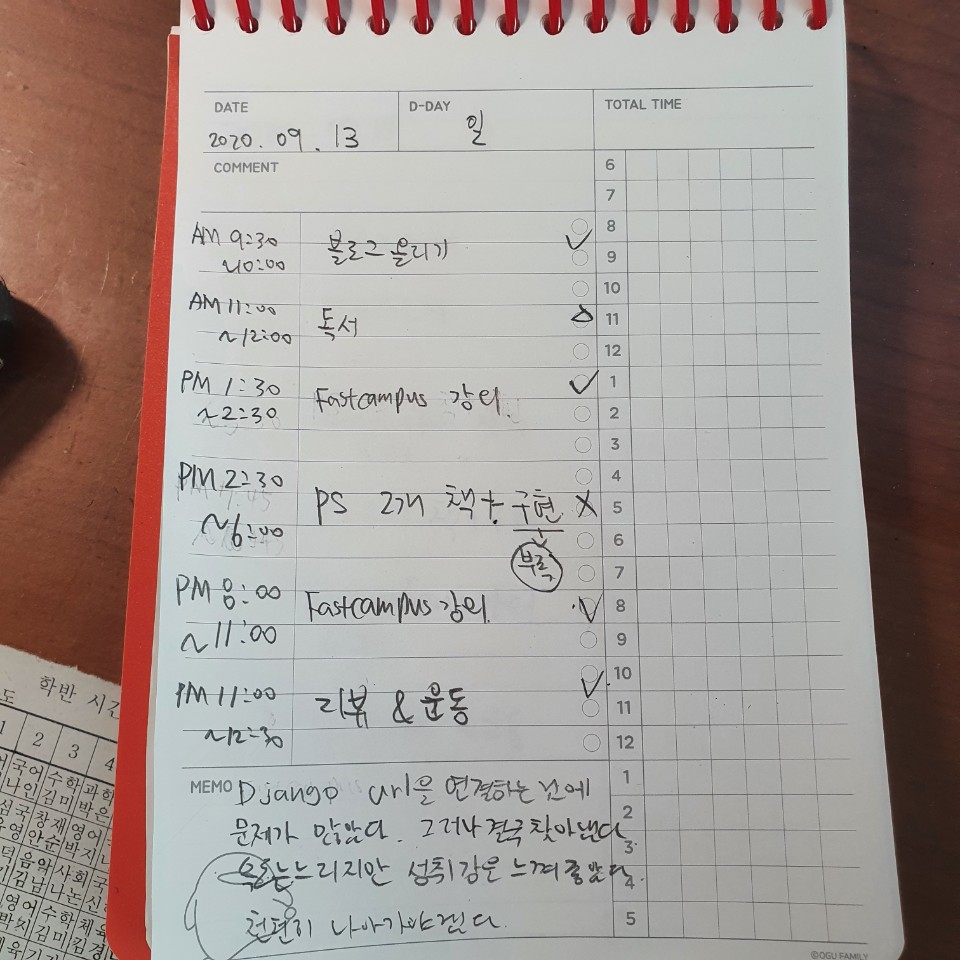 DATE
2020. 09. 13
D-DAY
일
TOTAL TIME
COMMENT
AM 9:30
~10:00
블로그 올리기
AM 11:00
~12:00
독서
PM 1:30
~2:30
Fastcampus 강의.
PM 2:30
~6:00
PS 2개 책 + 구현
부록
PM 8:00
~11:00
Fastcampus 강의.
PM 11:00
~12:30
리뷰 & 운동
6
7
8
9
10
11
12
1
2
3
4
5
6
7
8
9
10
11
12
1
2
3
4
5
MEMO
Django url을 연결하는 것에
문제가 많았다. 그러나 결국 찾아냈다.
느리지만 성취감은 느껴 좋았다.
천천히 나아가야겠다.
©OGU FAMILY
학반 시간
도
1 2 3 4
국어 수학 과학
나인 김미 박은
국 창재 영어
영 안순 박지
덕 음악 사회 국
김남 나논 신
영어 수학 체육
박치 김미 김경